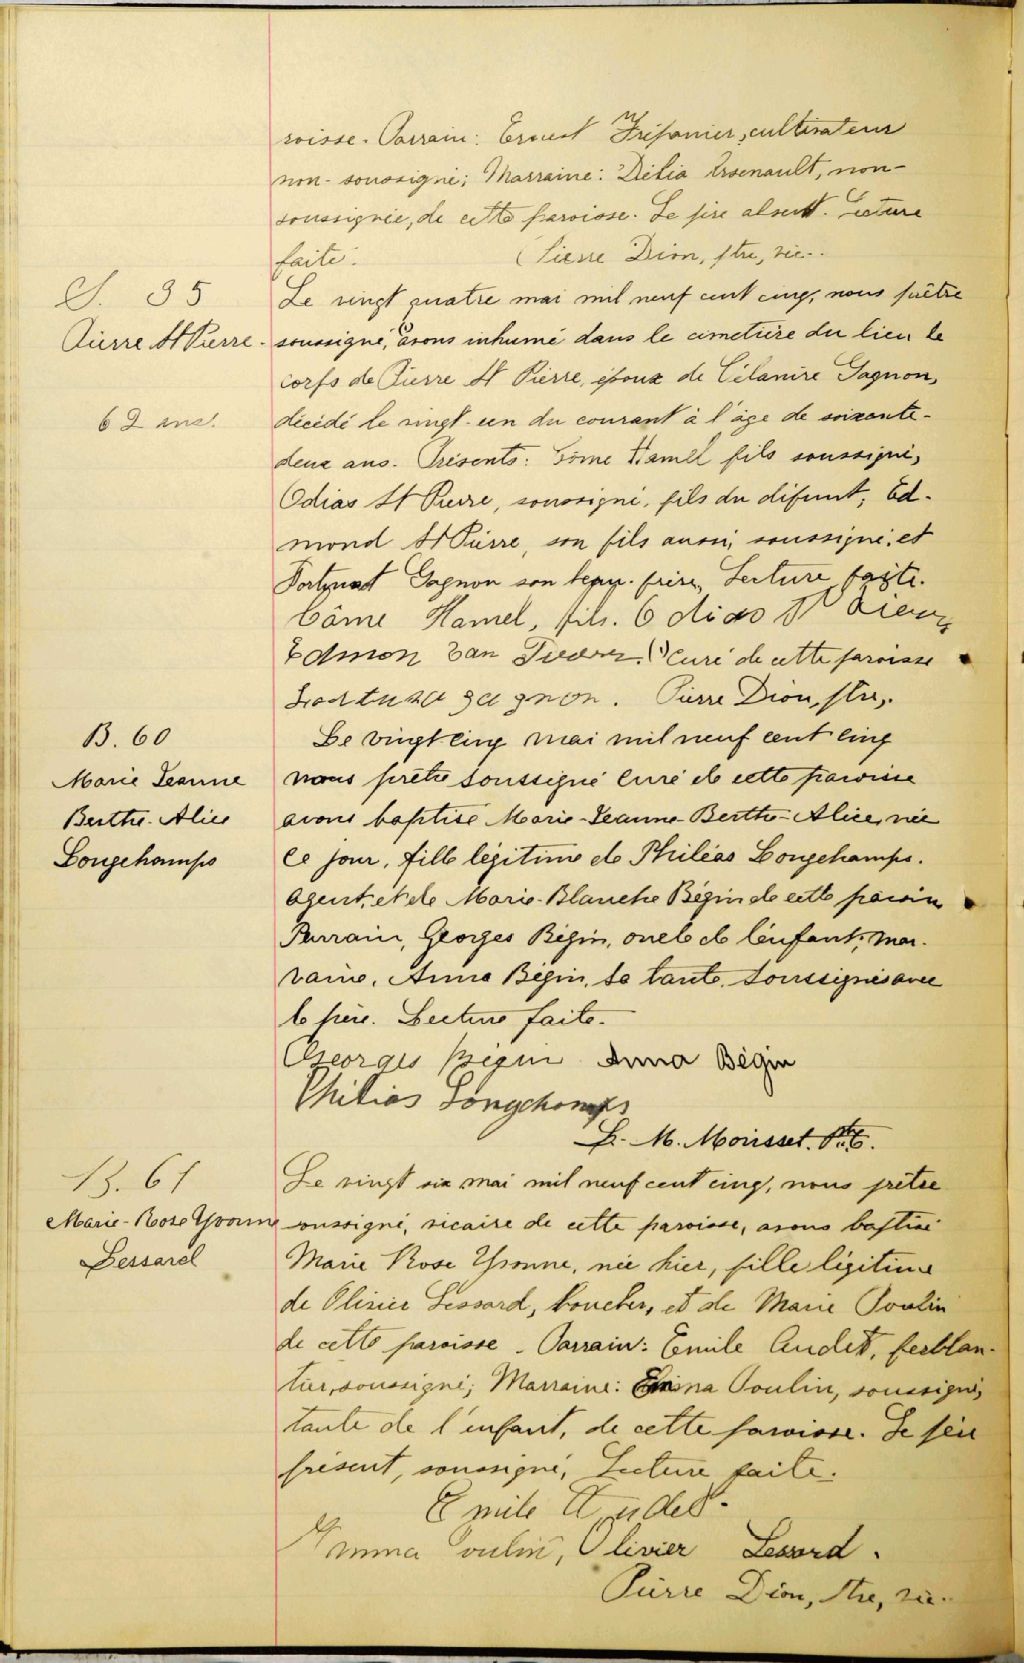 roisse. Parrain: Ernest Trépanier, cultivateur
non-soussigné; Marraine: Délia Arsenault, non-
soussignée, de cette paroisse. Le père absent. Lecture
faite. Pierre Dion, ptre, vic..
S. 35
Pierre St Pierre.
62 ans.
Le vingt quatre mai mil neuf cent cinq, nous prêtre
soussigné, avons inhumé dans le cimetière du lieu le
corps de Pierre St Pierre, époux de Célanire Gagnon,
décédé le vingt-un du courant à l'âge de soixante-
deux ans. Présents: Côme Hamel fils soussigné,
Odias St Pierre, soussigné, fils du défunt; Ed-
mond St Pierre, son fils aussi, soussigné, et
Fortunat Gagnon son beau-frère, Lecture faite.
Côme Hamel, fils. Odias St Pierre
Edmon San (1) curé de cette paroisse
gagnon. Pierre Dion, ptre,.
B. 60
Marie Jeanne
Berthe-Alice
Longchamps
Le vingt cinq mai mil neuf cent cinq
nous prêtre soussigné curé de cette paroisse
avons baptisé Marie-Jeanne-Berthe-Alice, née
ce jour, fille légitime de Philéas Longchamps.
agent, et de Marie-Blanche Bégin de cette paroisse
Parrain, Georges Bégin, oncle de l'enfant; mar-
raine, Anna Bégin, sa tante, soussignés avec
le père. Lecture faite.
Georges Bégin Anna Bégin
Philias Longchamps
L. M. Morisset. Ptre.
B. 61
Marie-Rose Yvonne
Lessard
Le vingt six mai mil neuf cent cinq, nous prêtre
soussigné, vicaire de cette paroisse, avons baptisé
Marie Rose Yvonne, née hier, fille légitime
de Olivier Lessard, boucher, et de Marie Poulin
de cette paroisse. Parrain: Emile Audet, ferblan-
tier, soussigné; Marraine: Emma Poulin, soussignée,
tante de l'enfant, de cette paroisse. Le père
présent, soussigné, Lecture faite.
Emile Audet.
Emma Poulin, Olivier Lessard.
Pierre Dion, ptre, vic..